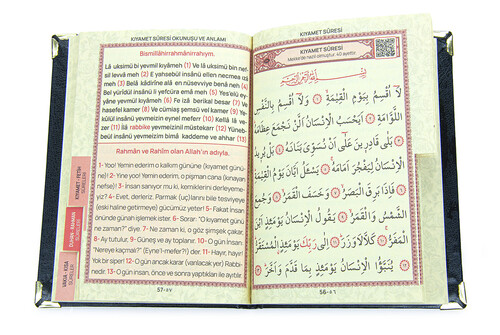 KIYAMET SÛRESİ OKUNUŞU VE ANLAMI
Bismillâhirrahmânirrahıym.
Lâ uksimü bi yevmil kıyâmeh (1) Ve lâ uksimü bin nef-
sil levvâ meh (2) E yahsebül insânü ellen necmea ızâ
meh (3) Belâ kâdirîne alâ en nüsevviye benâ neh (4)
Bel yürîdül insânü li yefcüra emâ meh (5) Yes'elü ey-
yâne yevmül kıyâmeh (6) Fe izâ berikal besar (7) Ve
hasefel kamer (8) Ve cümiaş şemsü vel kamer (9) Ye-
kûlül insânü yevmeizin eynel meferr (10) Kellâ lâ ve-
zer (11) İlâ rabbike yevmeizinil müstekarr (12) Yüneb-
beül insânü yevmeizin bimâ kaddeme ve ahhar (13)
Rahmân ve Rahîm olan Allah'ın adıyla.
1- Yoo! Yemin ederim o kalkım gününe (kıyamet günü-
ne)! 2- Yoo! Yemin ederim, o pişman cana (kınayan
nefse)! 3- İnsan sanıyor mu ki, kemiklerini derleyeme-
yiz? 4- Evet, derleriz. Parmak (uç) larını bile tesviyeye
(eski haline getirmeye) gücümüz yeter! 5- Fakat insan
önünde günah işlemek ister. 6- Sorar: "O kıyamet günü
ne zaman?" diye. 7- Ne zaman ki, o göz şimşek çakar,
8- Ay tutulur, 9- Güneş ve ay toplanır. 10- O gün insan:
"Nereye kaçmalı?" (Eyne'l-mefer?) der. 11- Hayır, hayır!
Yok bir siper! 12- O gün ancak karar (varılacak yer) Rabbi-
nedir. 13- O gün insan, önce ve sonra yaptıkları ile ayıtılır.
57-٥٧
KIYAMET / FETİH
SÛRELERİ
DUHAN - RAHMAN
SÛRELERİ
VÂKIA - KISA
SÛRELER
KIYAMET SÛRESİ
KIYAMET SÛRESİ
Mekke'de nazil olmuştur. 40 ayettir.
بِسْمِ اللهِ الرَّحْمٰنِ الرَّحِيمِ
لَٓا اُقْسِمُ بِيَوْمِ الْقِيٰمَةِ ﴿١﴾ وَلَٓا اُقْسِمُ بِالنَّفْسِ
اللَّوَّامَةِ ﴿٢﴾ اَيَحْسَبُ الْاِنْسَانُ اَلَّنْ نَجْمَعَ عِظَامَهُ
﴿٣﴾ بَلٰى قَادِرِينَ عَلٰٓى اَنْ نُسَوِّيَ بَنَانَهُ ﴿٤﴾ بَلْ يُرِيدُ
الْاِنْسَانُ لِيَفْجُرَ اَمَامَهُ ﴿٥﴾ يَسْـَٔلُ اَيَّانَ يَوْمُ الْقِيٰمَةِ
﴿٦﴾ فَاِذَا بَرِقَ الْبَصَرُ ﴿٧﴾ وَخَسَفَ الْقَمَرُ ﴿٨﴾ وَجُمِعَ
الشَّمْسُ وَالْقَمَرُ ﴿٩﴾ يَقُولُ الْاِنْسَانُ يَوْمَئِذٍ اَيْنَ
الْمَفَرُّ ﴿١٠﴾ كَلَّا لَا وَزَرَ ﴿١١﴾ اِلٰى رَبِّكَ يَوْمَئِذٍ الْمُسْتَقَرُّ
﴿١٢﴾ يُنَبَّؤُا الْاِنْسَانُ يَوْمَئِذٍ بِمَا قَدَّمَ وَاَخَّرَ ﴿١٣﴾
56-٥٦